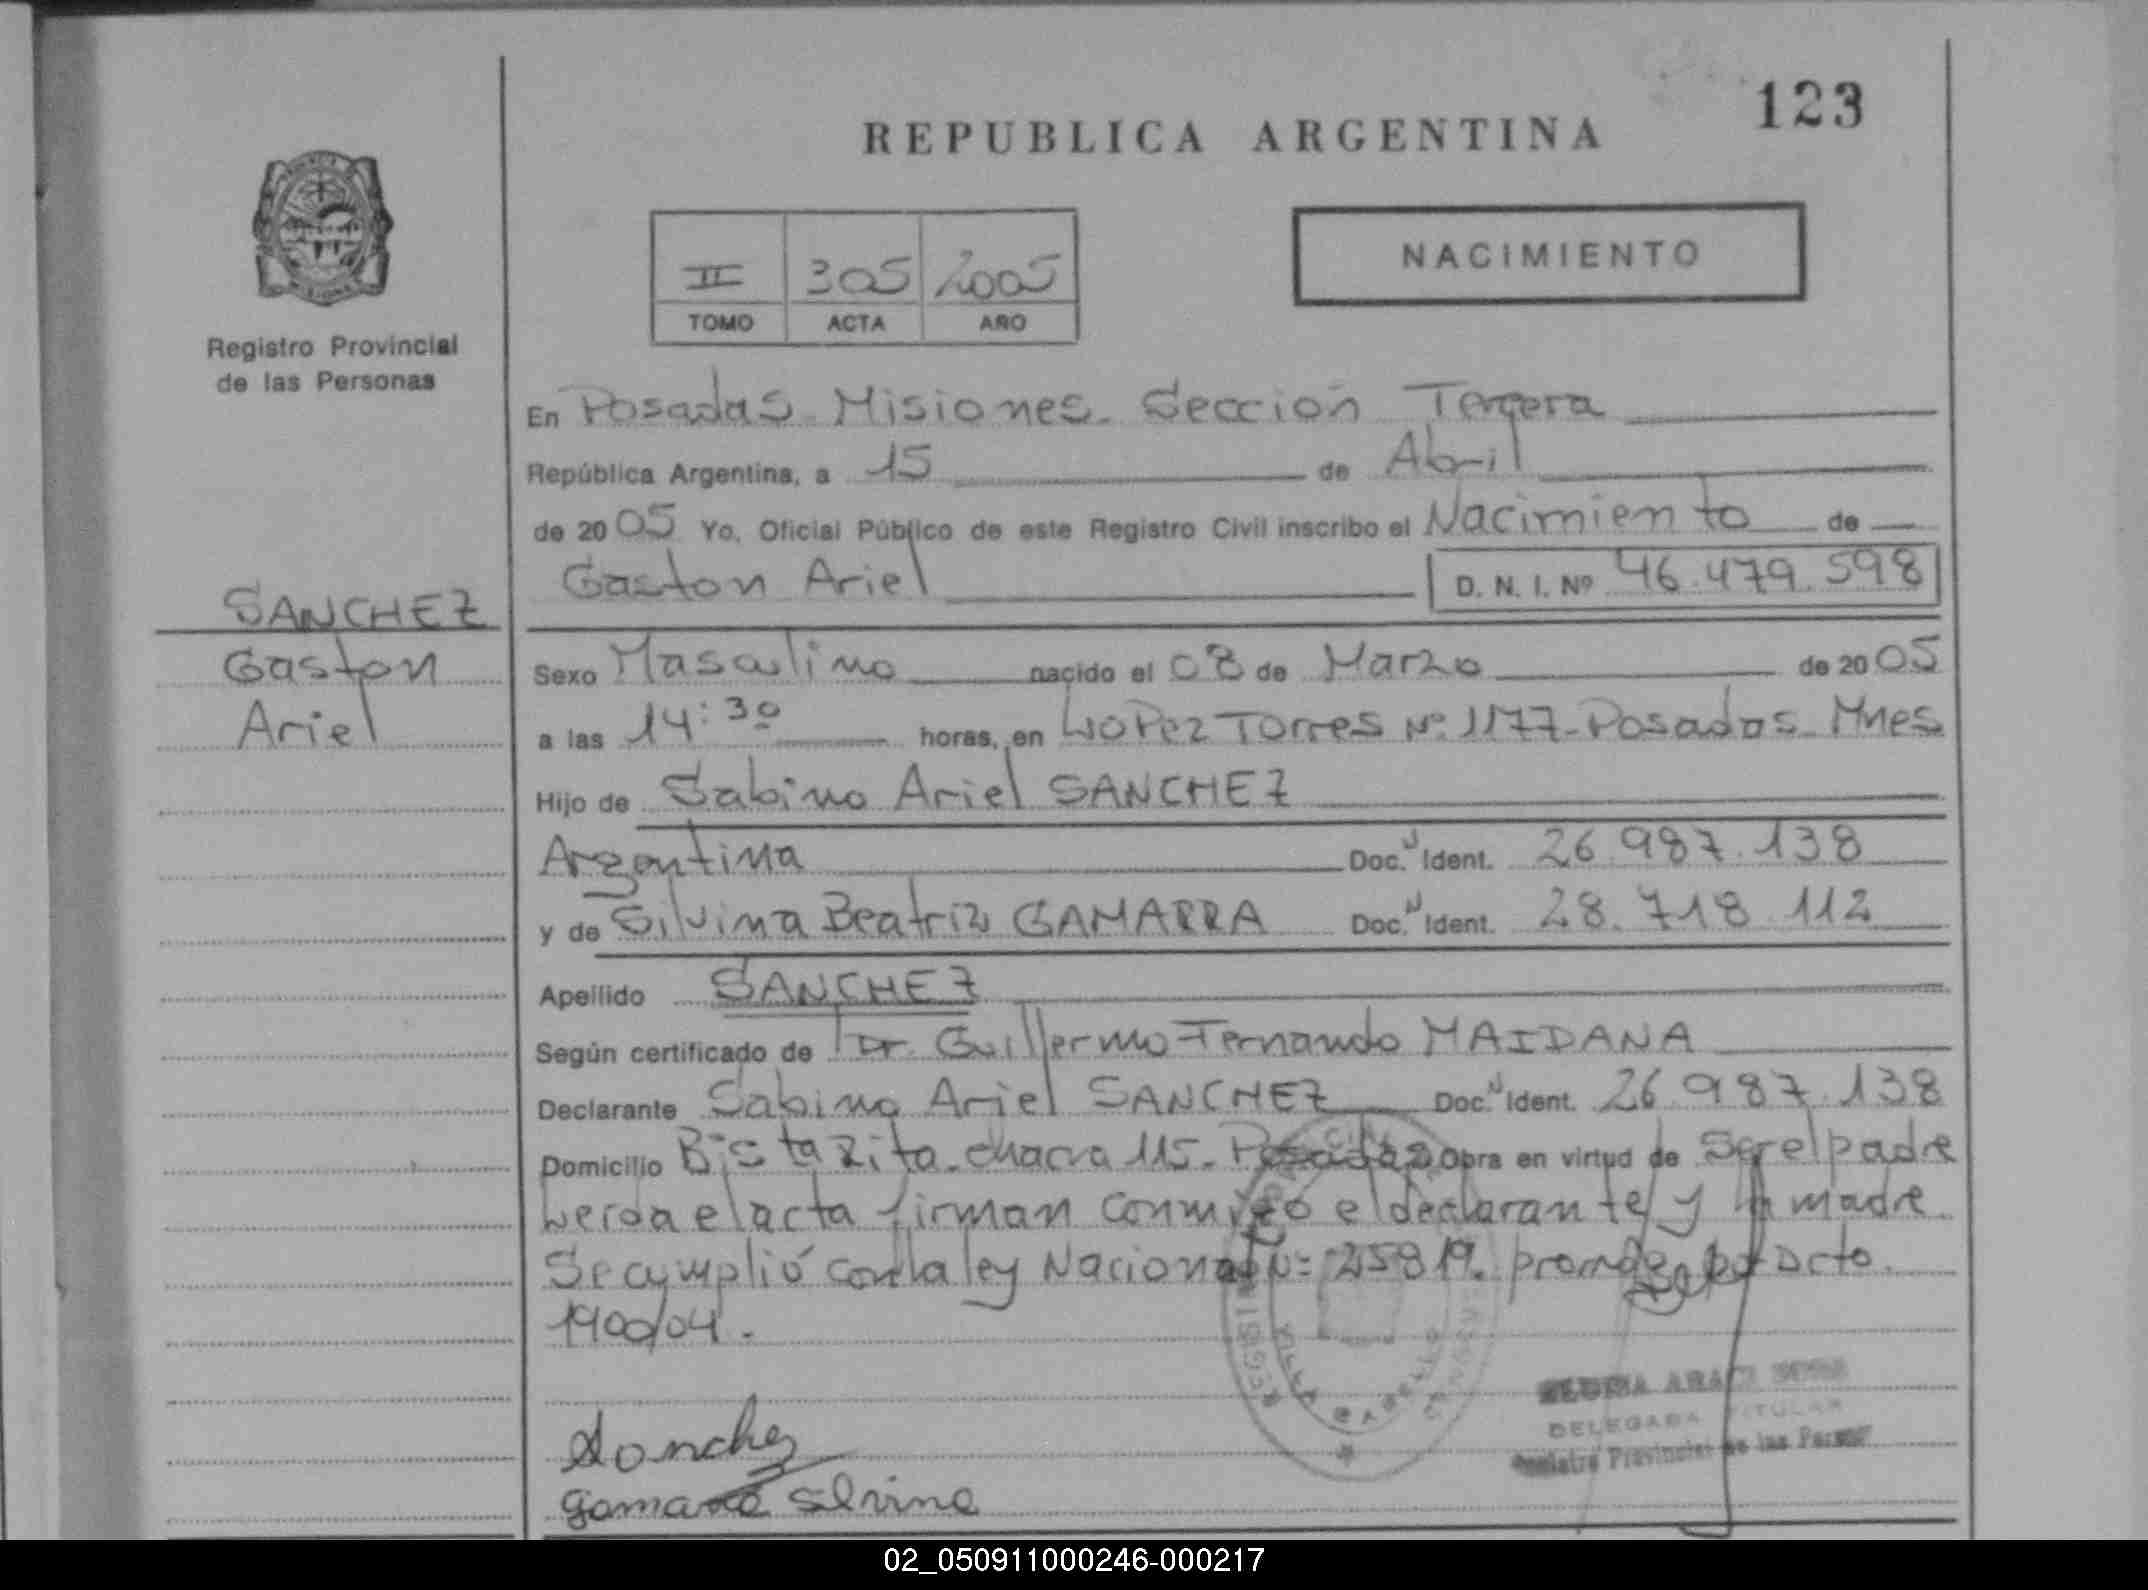 123
REPUBLICA ARGENTINA
NACIMIENTO
II 305 2005
TOMO ACTA AÑO
Registro Provincial
de las Personas
En Posadas - Misiones - Sección Tercera
República Argentina, a 15 de Abril
de 2005 Yo, Oficial Público de este Registro Civil inscribo el Nacimiento de
Gaston Ariel D. N. I. Nº 46.479.598
SANCHEZ
Gaston
Ariel
Sexo Masculino nacido el 08 de Marzo de 2005
a las 14:30 horas, en López Torres Nº 1177 - Posadas - Mnes
Hijo de Sabino Ariel SANCHEZ
Argentina Doc. Ident. 26.987.138
y de Silvina Beatriz GAMARRA Doc. Ident. 28.718.112
Apellido SANCHEZ
Según certificado de Dr. Guillermo Fernando MAIDANA
Declarante Sabino Ariel SANCHEZ Doc. Ident. 26.987.138
Domicilio Bista Rita - chacra 115 - Posadas Obra en virtud de ser el padre
Leida el acta firman conmigo el declarante y la madre.
Se cumplió con la ley Nacional Nº 25819. Dcto.
1900/04.
VILLA CABELLO
DELEGADA TITULAR
Registro Provincial de las Person
Sanchez
gamarra silvina
02_050911000246-000217